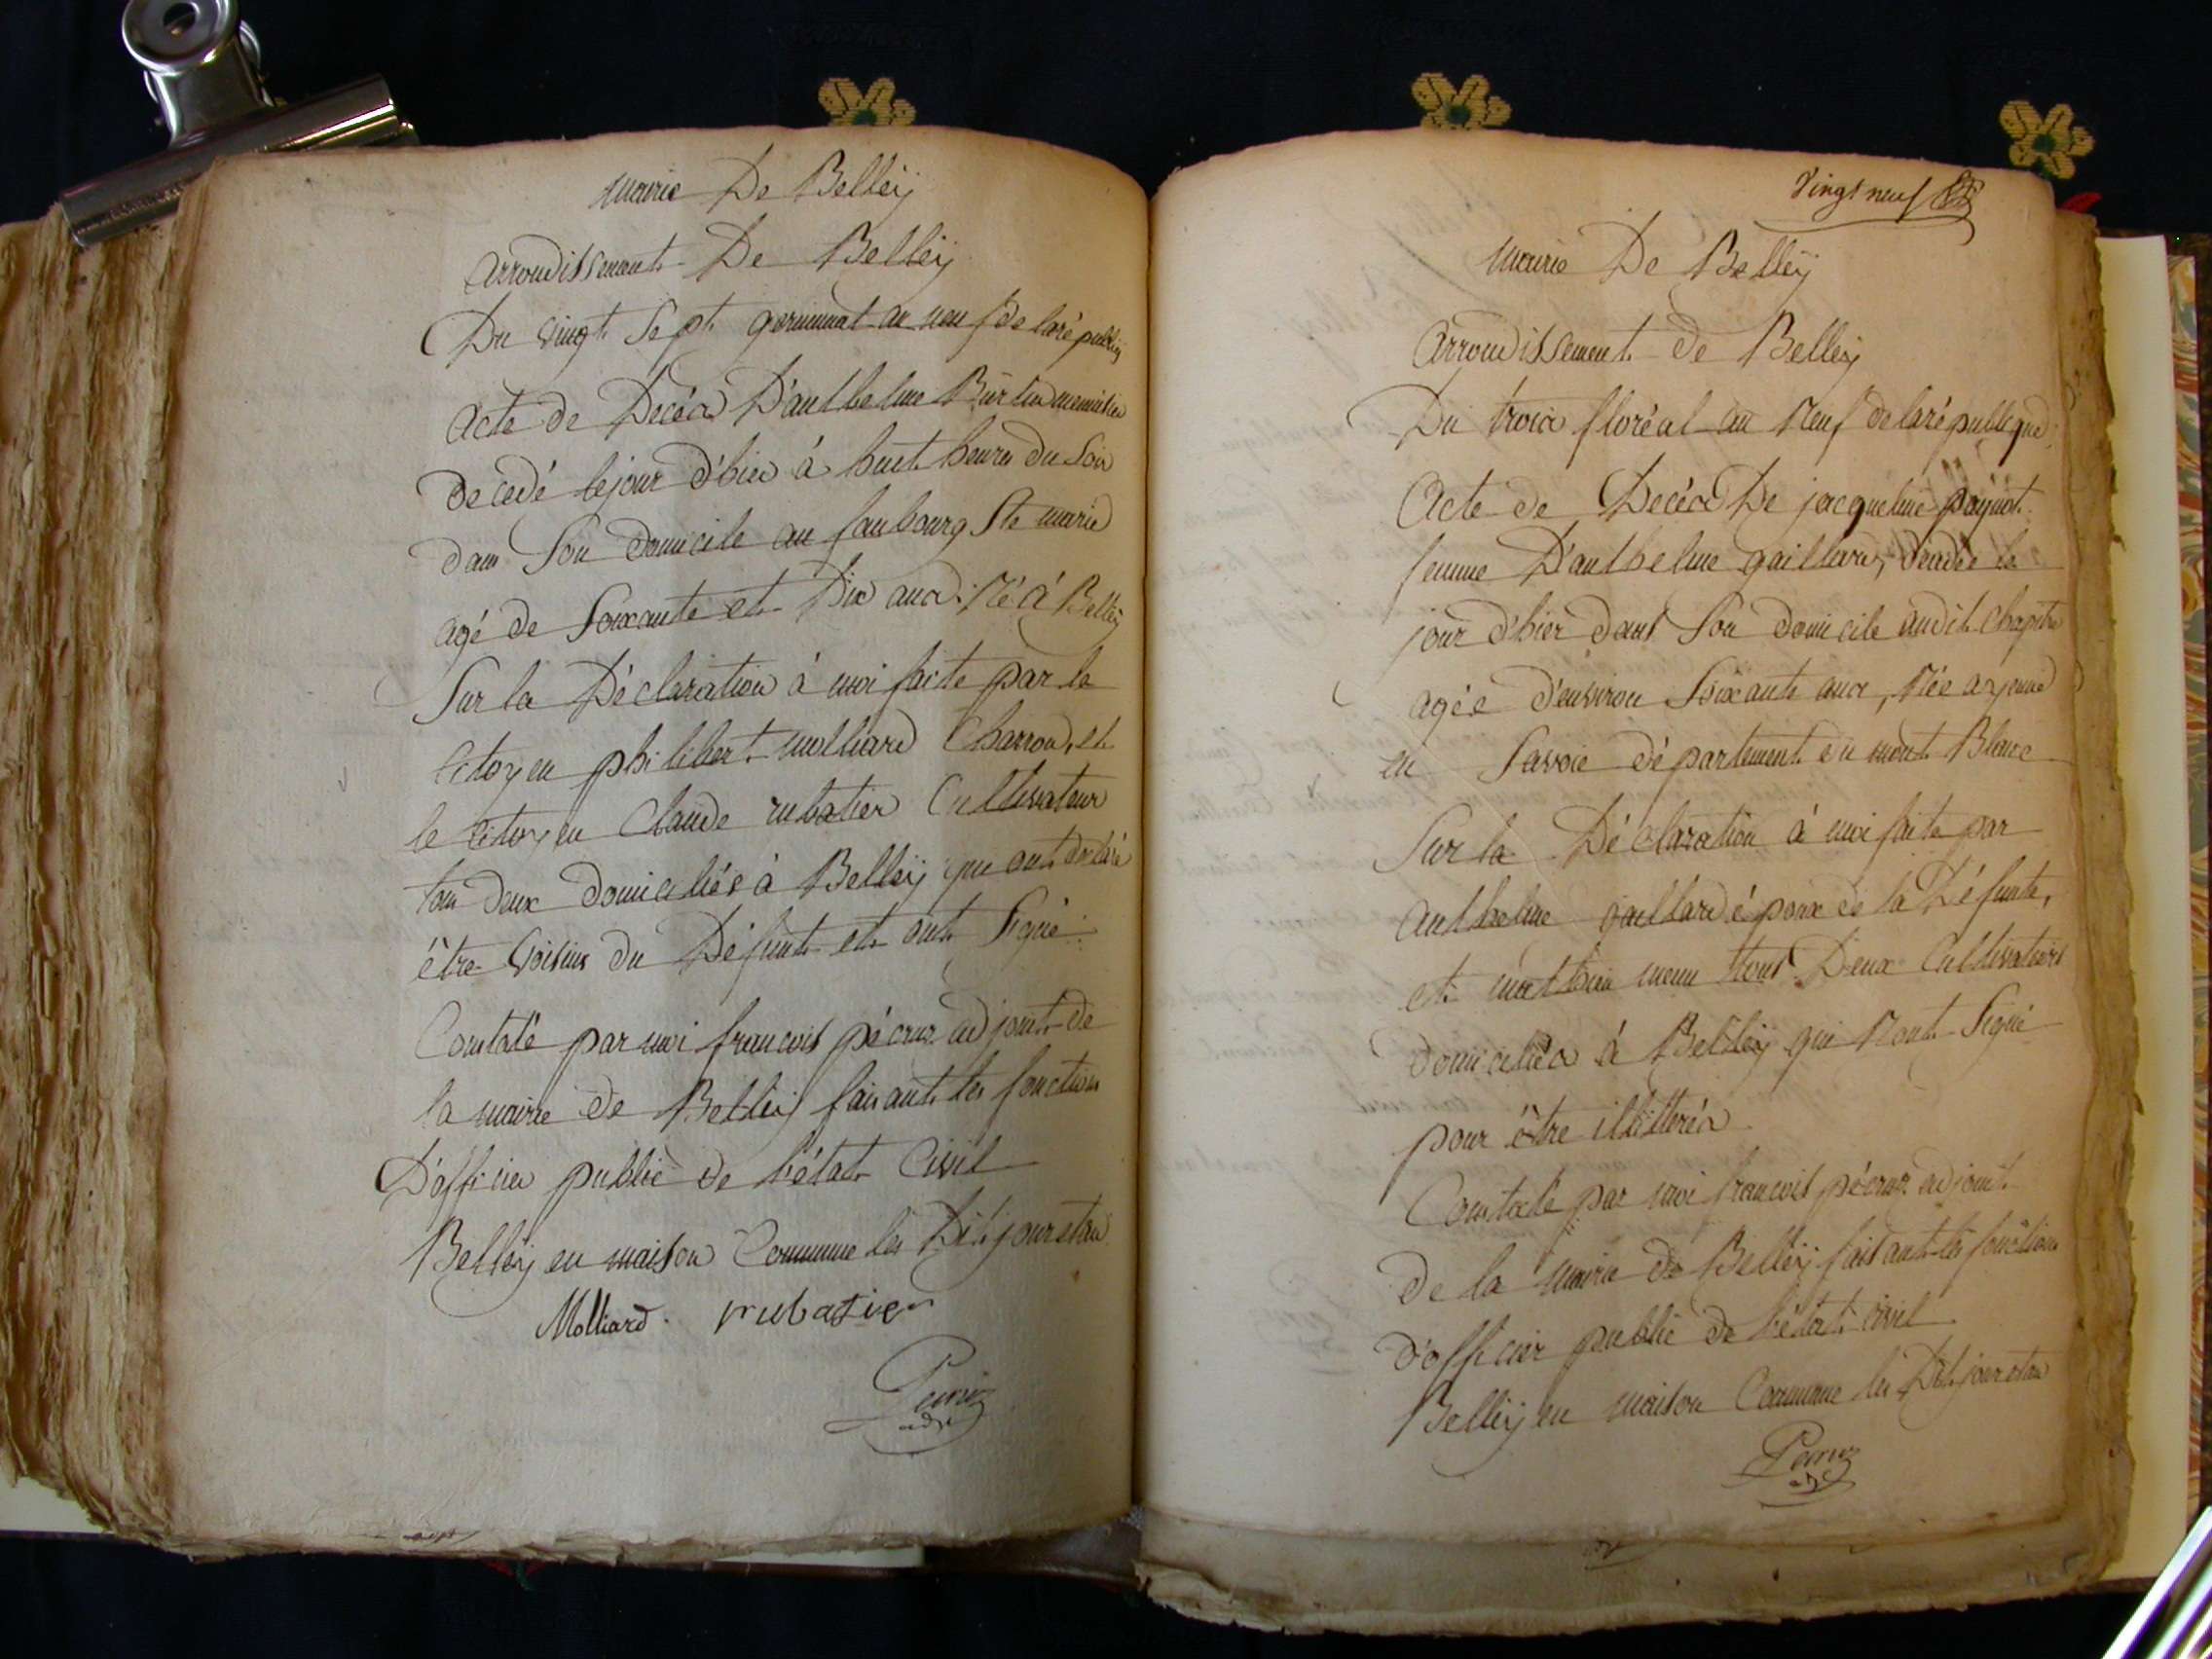 Mairie De Belleÿ
Arrondissement De Belleÿ
Du vingt Sept germinal an neuf de larépubliq
Acte de Decéa D'anthelme Burtin menuisier
decedé lejour d'hier à huit heures du Soir
dans Son domicile au faubourg Ste marie
agé de Soixante et Dix ans. Né à Belleÿ
Sur la Déclaration à moi faite par le
Citoyen philibert molliard Charron, et
le Citoyen Claude rubatier Cultivateur
tous deux domiciliés à Belleÿ qui ont déclaré
être Voisins du Défunt et ont Signé
Constaté par moi françois pécruz adjoint de
la mairie de Belleÿ faisant les fonctions
D'officier public de l'état Civil
Belleÿ en maison Commune les Dit jour et an
Molliard. rubatier
Pecruz
adjt
Vingt neuf
Mairie De Belleÿ
Arrondissement de Belleÿ
Du trois floréal an Neuf de larépublique
Acte de Decéa De jacqueline
femme D'anthelme gaillard, decedée le
jour d'hier dans Son domicile audit Chapitre
agée d'environ Soixante ans, Née a yenne
en Savoie département du mont Blanc
Sur la Déclaration à moi faite par
Anthelme gaillard époux de la Défunte,
et mathieu tous Deux Cultivateurs
domiciliés à Belleÿ qui Nont Signé
pour être illittérés
Constaté par moi françois pécruz adjoint
de la mairie de Belleÿ faisant les fonctions
d'officier public de l'état civil
Belleÿ en maison Commune les Dit jour et an
Pecruz
adjt